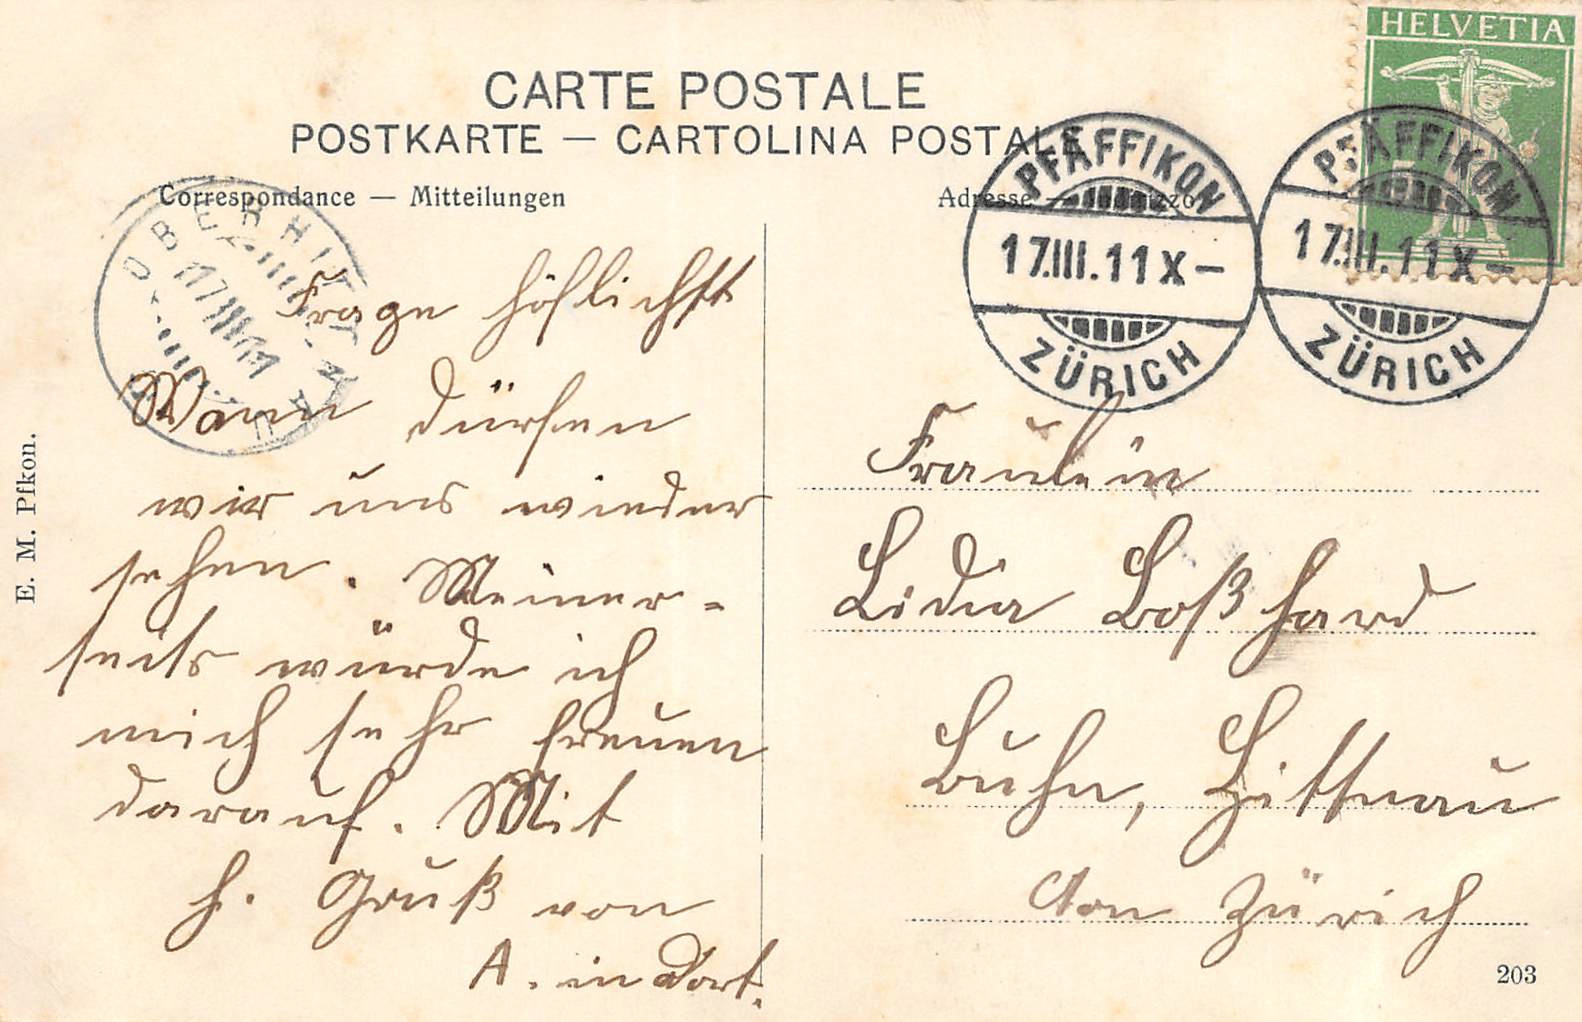 HELVETIA
CARTE POSTALE
POSTKARTE — CARTOLINA POSTALE
Correspondance — Mitteilungen
Adresse — Indirizzo
PFÄFFIKON
17.III.11 X–
ZÜRICH
PFÄFFIKON
17.III.11 X–
ZÜRICH
OBERHITTNAU
17.III.11
Frage höflichst
Wann dürfen
wir uns wieder
sehen. Meiner-
seits würde ich
mich sehr freuen
darauf. Mit
h. Gruß von
A. in Dorf.
Fräulein
Lidia Boßhard
Hittnau
Cton Zürich
E. M. Pfkon.
203